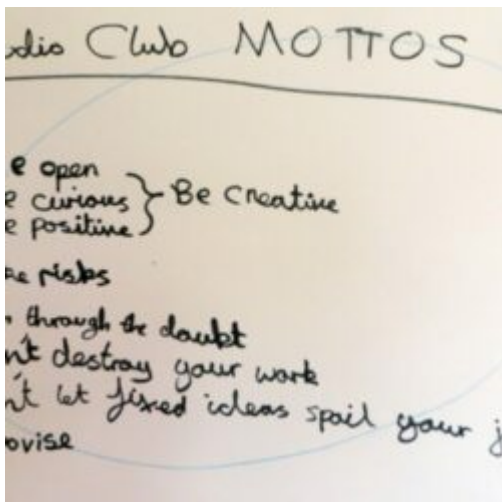 dio Club MOTTOS
e open
e curious } Be Creative
e positive
ke risks
through the doubt
n't destroy your work
n't let fixed ideas spoil your j
ovise